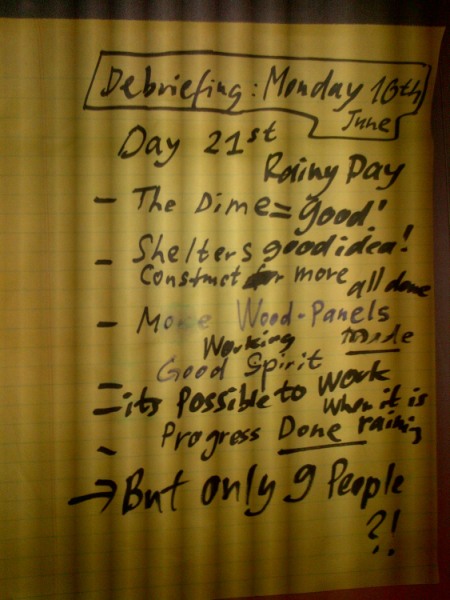 Debriefing: Monday 10th
June
Day 21st
Rainy Day
- The Dime = good!
- Shelters good idea!
Construct for more all done
- More Wood-Panels
Working made
Good Spirit
= its Possible to Work
when it is
- Progress Done raining
→ But only 9 People
?!